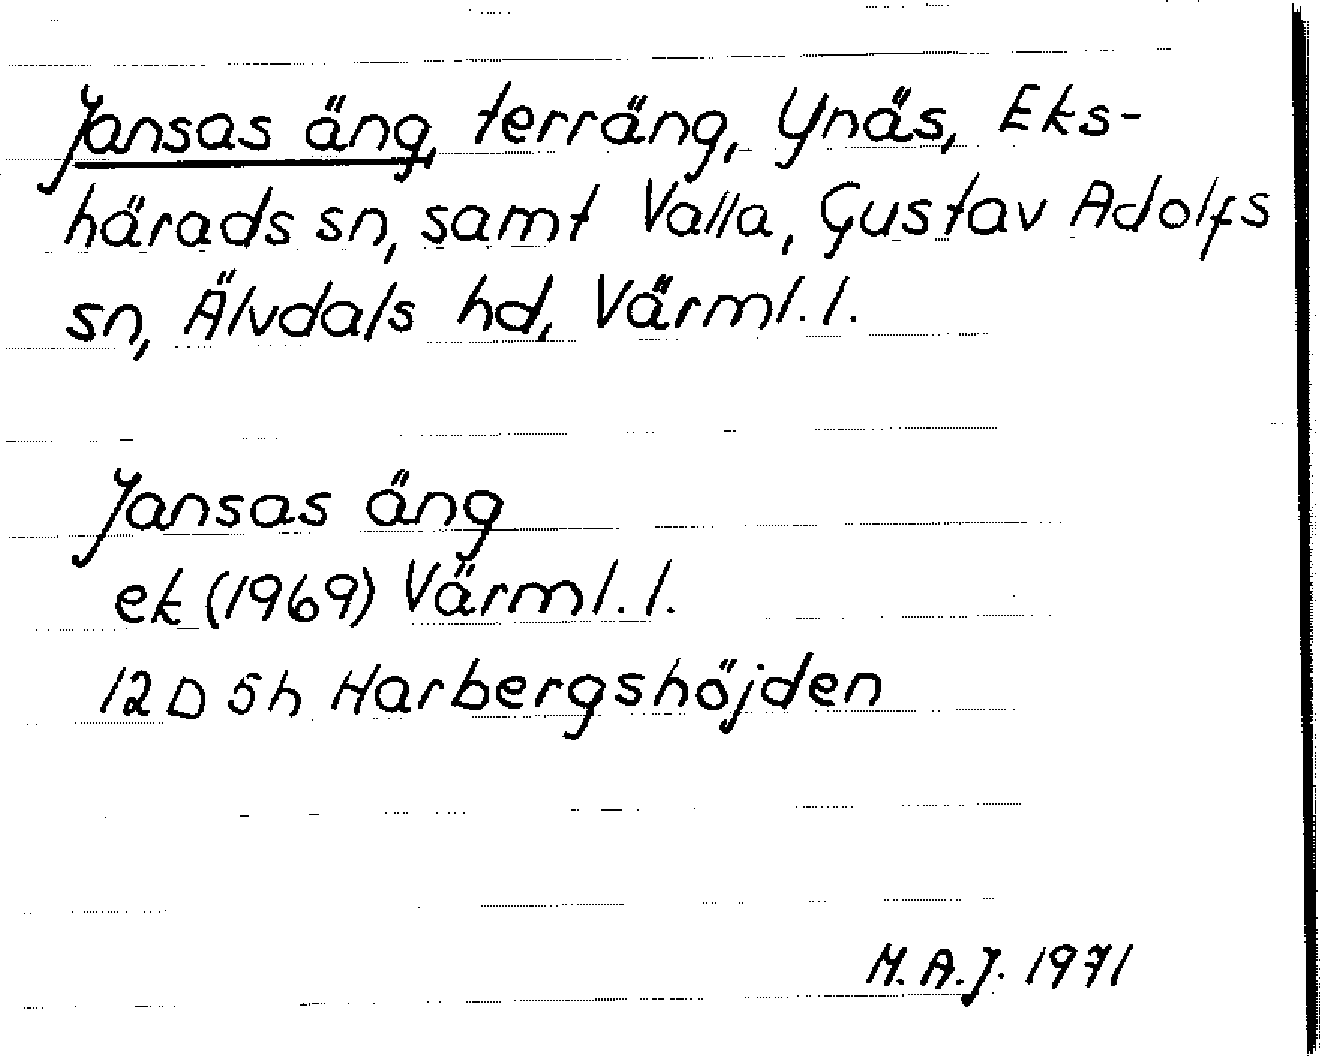 Jansas äng, terräng, Ynäs, Eks-
härads sn, samt Valla, Gustav Adolfs
sn, Älvdals hd, Värml. l.
Jansas äng
ek (1969) Värml. l.
12 D 5h Harbergshöjden
M. A. J. 1971